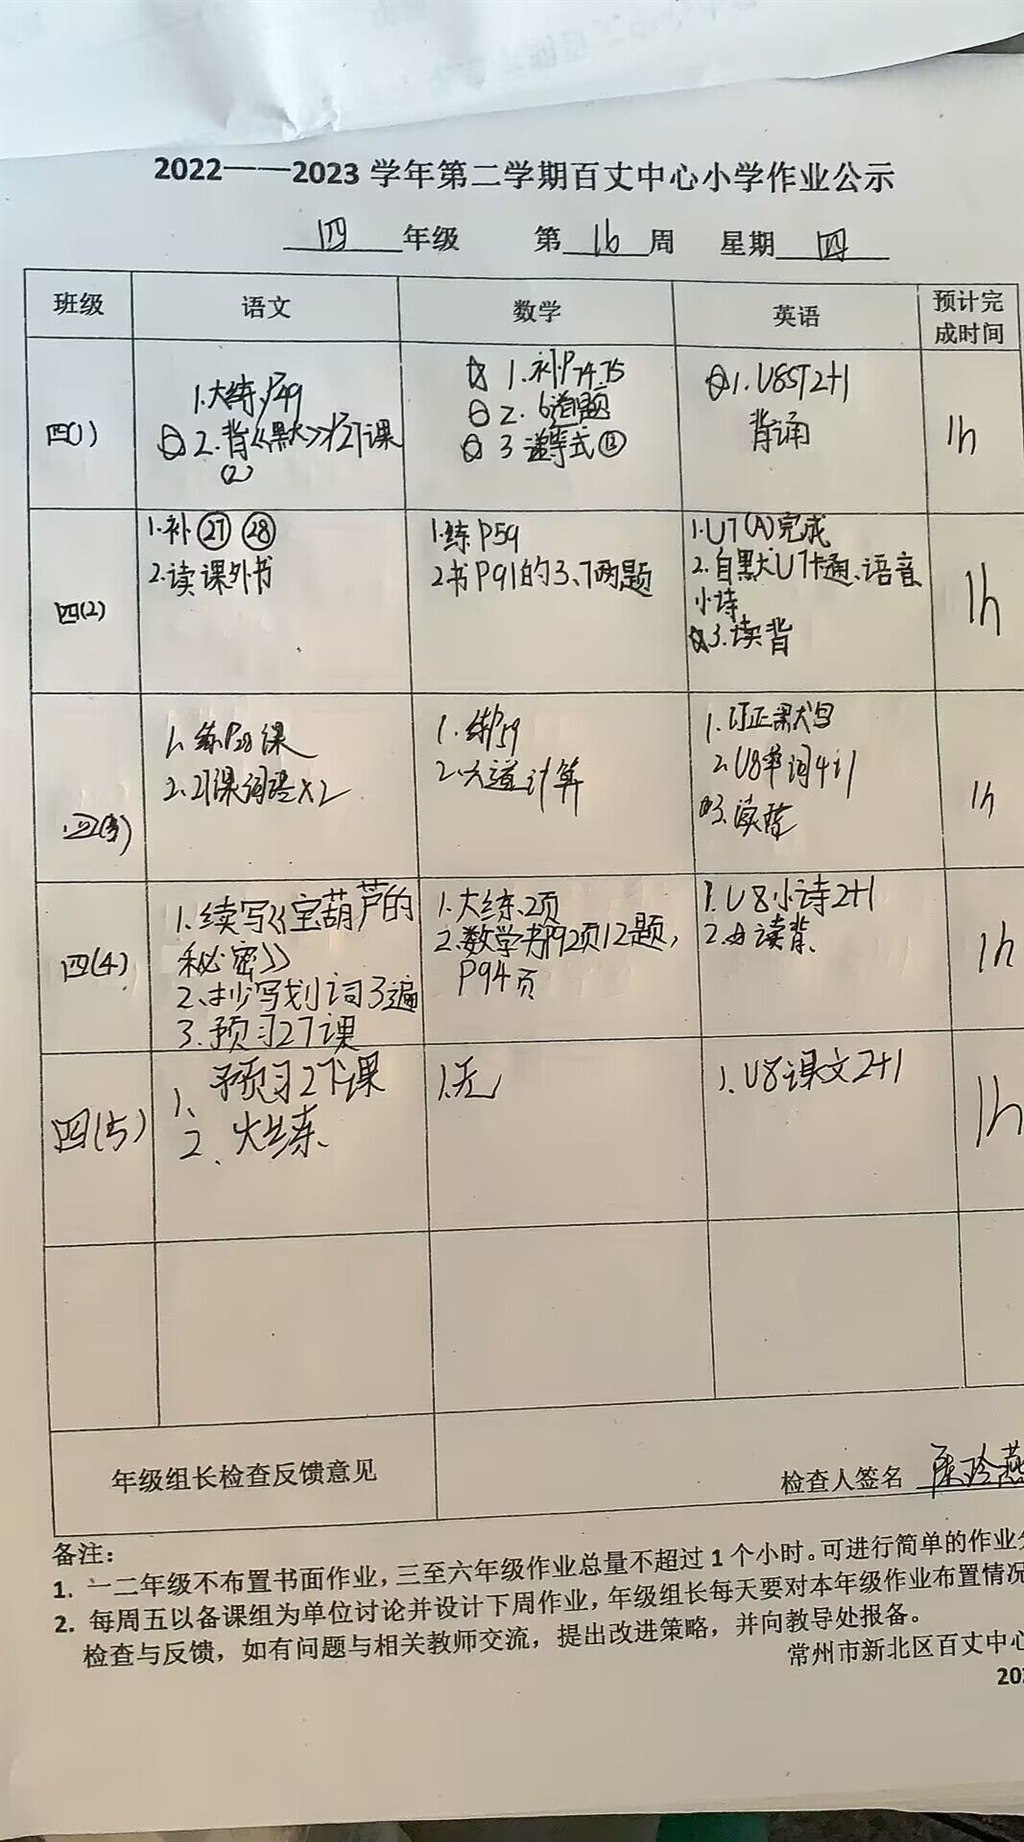 2022——2023 学年第二学期百丈中心小学作业公示
四 年级 第 16 周 星期 四
班级 语文 数学 英语 预计完成时间
四(1)
1.大练P49
2.背《默》 27课
(2)
1.补P74.75
2.6道题
3 递等式⑫
1.U8ST2+1
背诵
1h
四(2)
1.补㉗ ㉘
2.读课外书
1.练P59
2书P91的3、7两题
1.U7(A)完成
2.自默U7卡通、语音
小诗
☆3.读背
1h
四(3)
1.练P28课
2.27课词语×2
1.练P59
2.六道计算
1.订正默写
2.U8单词4+1
3.读背
1h
四(4)
1.续写《宝葫芦的
秘密》
2、抄写划词3遍
3.预习27课
1.大练2页
2.数学书P92页12题,
P94页
1.U8小诗2+1
2.读背
1h
四(5)
1、预习27课
2、大练
1.无
1、U8课文2+1
1h
年级组长检查反馈意见
检查人签名
备注:
1. 一二年级不布置书面作业,三至六年级作业总量不超过1个小时。可进行简单的作业
2. 每周五以备课组为单位讨论并设计下周作业,年级组长每天要对本年级作业布置情况
检查与反馈,如有问题与相关教师交流,提出改进策略,并向教导处报备。
常州市新北区百丈中心
202